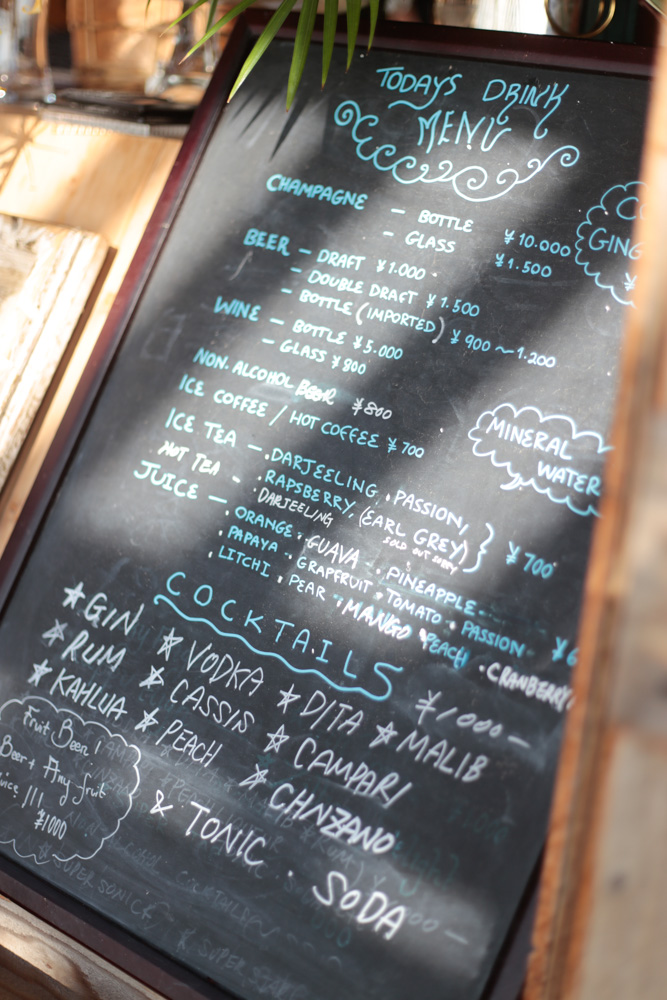 TODAYS DRINK
MENU
CHAMPAGNE — BOTTLE ¥10.000
— GLASS ¥1.500
GING
¥
BEER — DRAFT ¥1.000
— DOUBLE DRAFT ¥1.500
— BOTTLE (IMPORTED) ¥900 ~ 1.200
WINE — BOTTLE ¥5.000
— GLASS ¥800
NON. ALCOHOL BEER ¥800
ICE COFFEE / HOT COFFEE ¥700
MINERAL
WATER
ICE TEA — . DARJEELING . PASSION,
. RAPSBERRY, (EARL GREY) } ¥700
SOLD OUT SORRY
HOT TEA - . DARJEELING
JUICE — . ORANGE . GUAVA . PINEAPPLE
. PAPAYA . GRAPFRUIT . TOMATO . PASSION ¥6
. LITCHI . PEAR . MANGO . PEACH . CRANBERRY
COCKTAILS ¥1000—
☆ GIN ☆ VODKA ☆ DITA ☆ MALIB
☆ RUM ☆ CASSIS ☆ CAMPARI
☆ KAHLUA ☆ PEACH ☆ CHNZANO
& TONIC . SODA
Fruit Beer!
Beer + Any fruit
¥1000